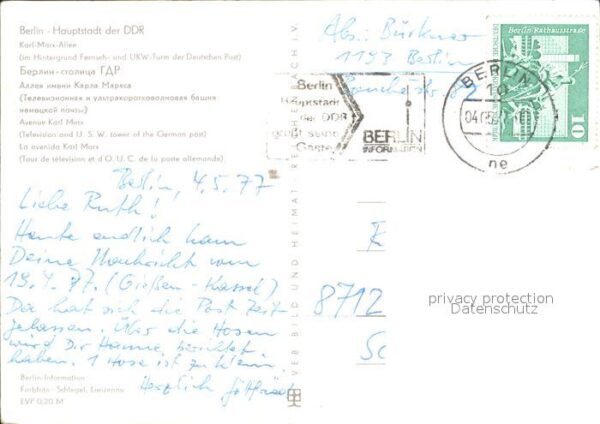 Berlin - Hauptstadt der DDR
Karl-Marx-Allee
(im Hintergrund Fernseh- und UKW-Turm der Deutschen Post)
Берлин-столица ГДР
Аллея имени Карла Маркса
(Телевизионная и ультракоротковолновая башня
немецкой почты)
Avenue Karl Marx
(Television and U. S. W. tower of the German post)
La avenida Karl Marx
(Tour de télévision et d'O. U. C. de la poste allemande)
Abs.: Bürkner
1193 Berlin
Berlin
Hauptstadt
der DDR
grüßt seine
Gäste
i
BERLIN
INFORMATION
BERLIN
10
ne
Berlin, Rathausstraße
10
Berlin, 4.5.77
Liebe Ruth!
Heute endlich kam
Deine Nachricht vom
19.4.77. (Gießen - Kassel)
Da hat sich die Post Zeit
gelassen. Über die Hosen
wird Dir Hanne berichtet
haben. 1 Hose ist zu klein.
Herzlich
8712
privacy protection
Datenschutz
VEB BILD UND HEIMAT REICHENBACH I. V.
Berlin-Information
EVP 0,20 M